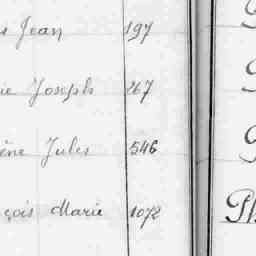 s Jean 197
ie Joseph 267
ène Jules 546
çois Marie 1072
Ph